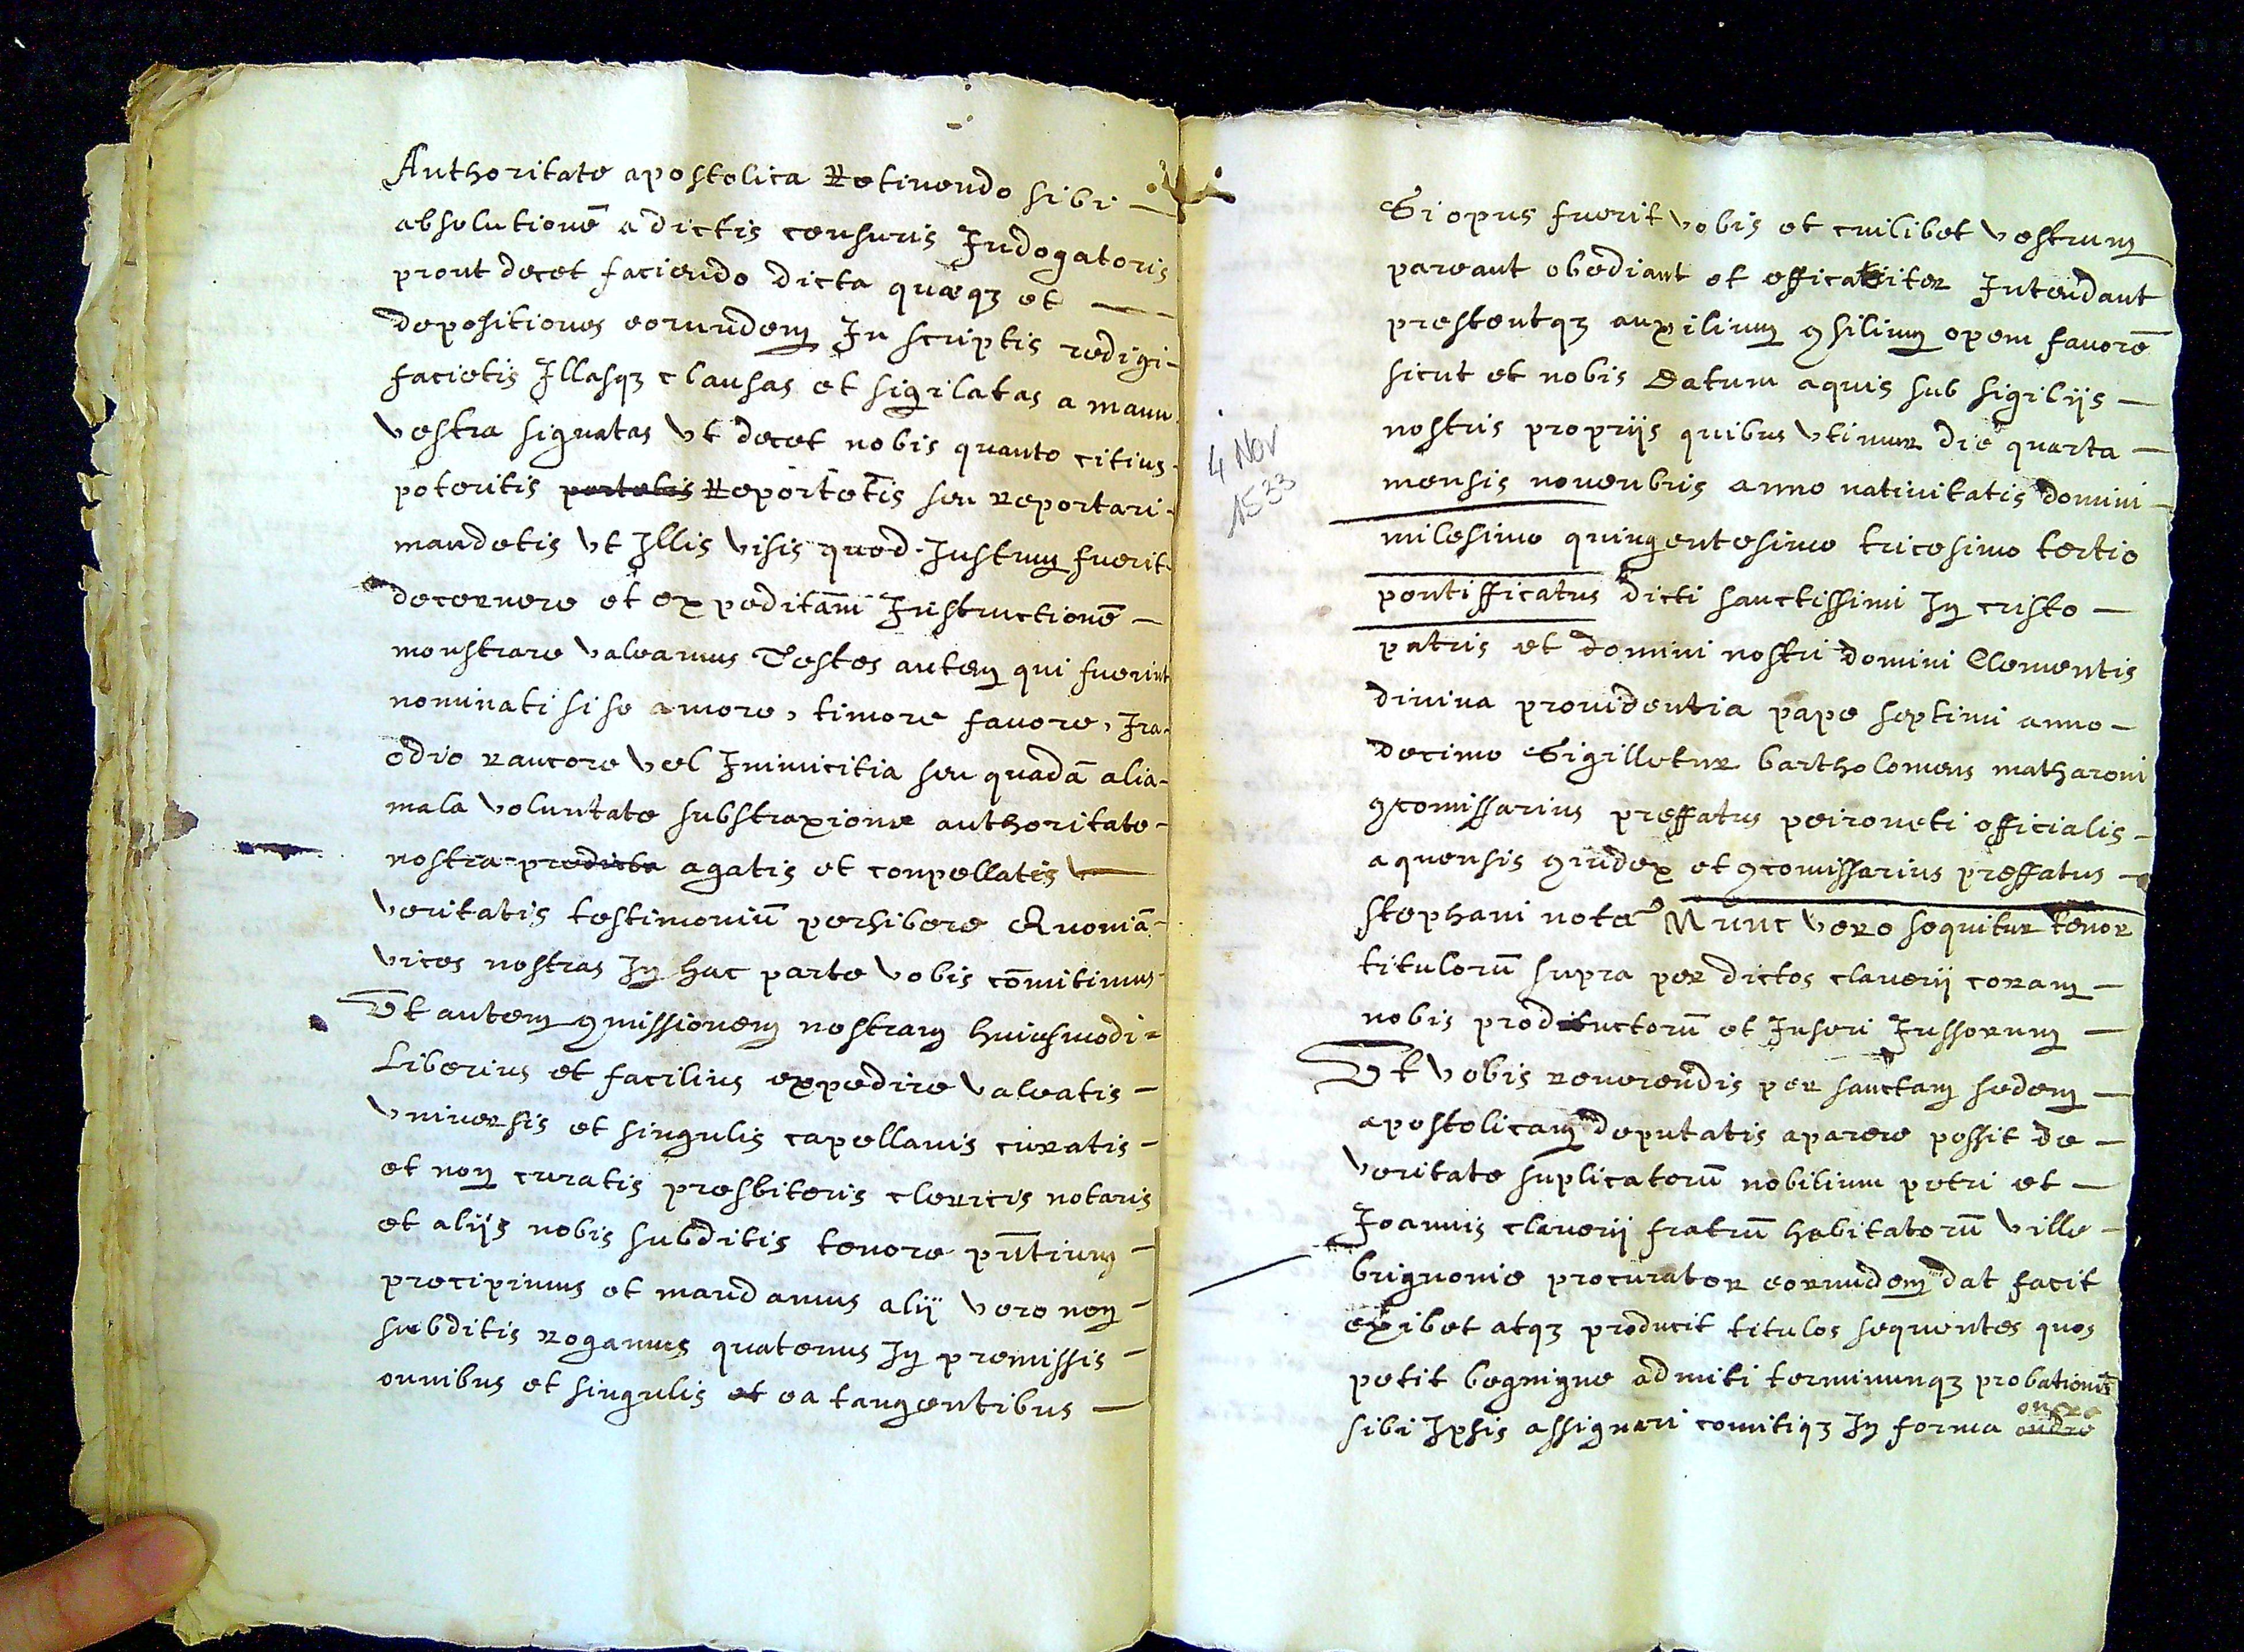 Authoritate apostolica Retinendo sibi —
absolutionē a dictis censuris Indogatoris
prout decet faciendo dicta quæqȝ et —
depositiones eorundem In scriptis redigi-
facietis Illasqȝ clausas et sigilatas a manu
vestra signatas vt decet nobis quanto citius-
poteritis portetis Reportetis seu reportari-
mandetis vt Illis visis quod Iustum fuerit-
decernere et expeditam Instructionē —
monstrare valeamus Testes autem qui fuerint
nominati si se amore, timore favore, Ira-
odio rancore vel Inimicitia seu quadā alia-
mala voluntate substraxione authoritate-
nostra predicta agatis et conpellatis —
veritatis testimoniū perhibere Quoniā-
vices nostras In hac parte vobis cōmitimus-
Vt autem ꝯmissionem nostram huiusmodi-
Liberius et facilius expedire valeatis —
vniversis et singulis capellanis curatis-
et non curatis presbiteris clericis notaris
et aliis nobis subditis tenore pn̄tium —
precipimus et mandamus alij vero non-
subditis rogamus quatenus In premissis —
omnibus et singulis et ea tangentibus —
Si opus fuerit vobis et cuilibet vestrum
pareant obediant et efficatiter Intendant
prestentqȝ auxilium ꝯsilium opem favorē
sicut et nobis Datum aquis sub sigiliis —
nostris propriis quibus vtimur die quarta —
4 Nov
1533
mensis novenbris anno nativitatis domini-
milesimo quingentesimo tricesimo tertio
pontifficatus dicti sanctissimi In cristo —
patris et domini nostri domini Clementis
divina providentia pape septimi anno —
decimo Sigilletur bartholomeus matharoni
ꝯcomissarius preffatus peironeti officialis-
aquensis ꝯiudex et ꝯcomissarius preffatus —
stephani notᵃ Nunc vero sequitur tenor
titulorū supra per dictos claverij coram —
nobis productorū et Inseri Iussorum —
Vt vobis reverendis per sanctam sedem —
apostolicam deputatis aparere possit de —
veritate suplicatorū nobilium petri et —
Joannis claverij fratrū habitatorū ville-
brignonie procurator eorundem dat facit
exibet atqȝ producit titulos sequentes quos
petit begnigne admiti terminunqȝ probationis
sibi Ipsis assignari comitiqȝ In forma